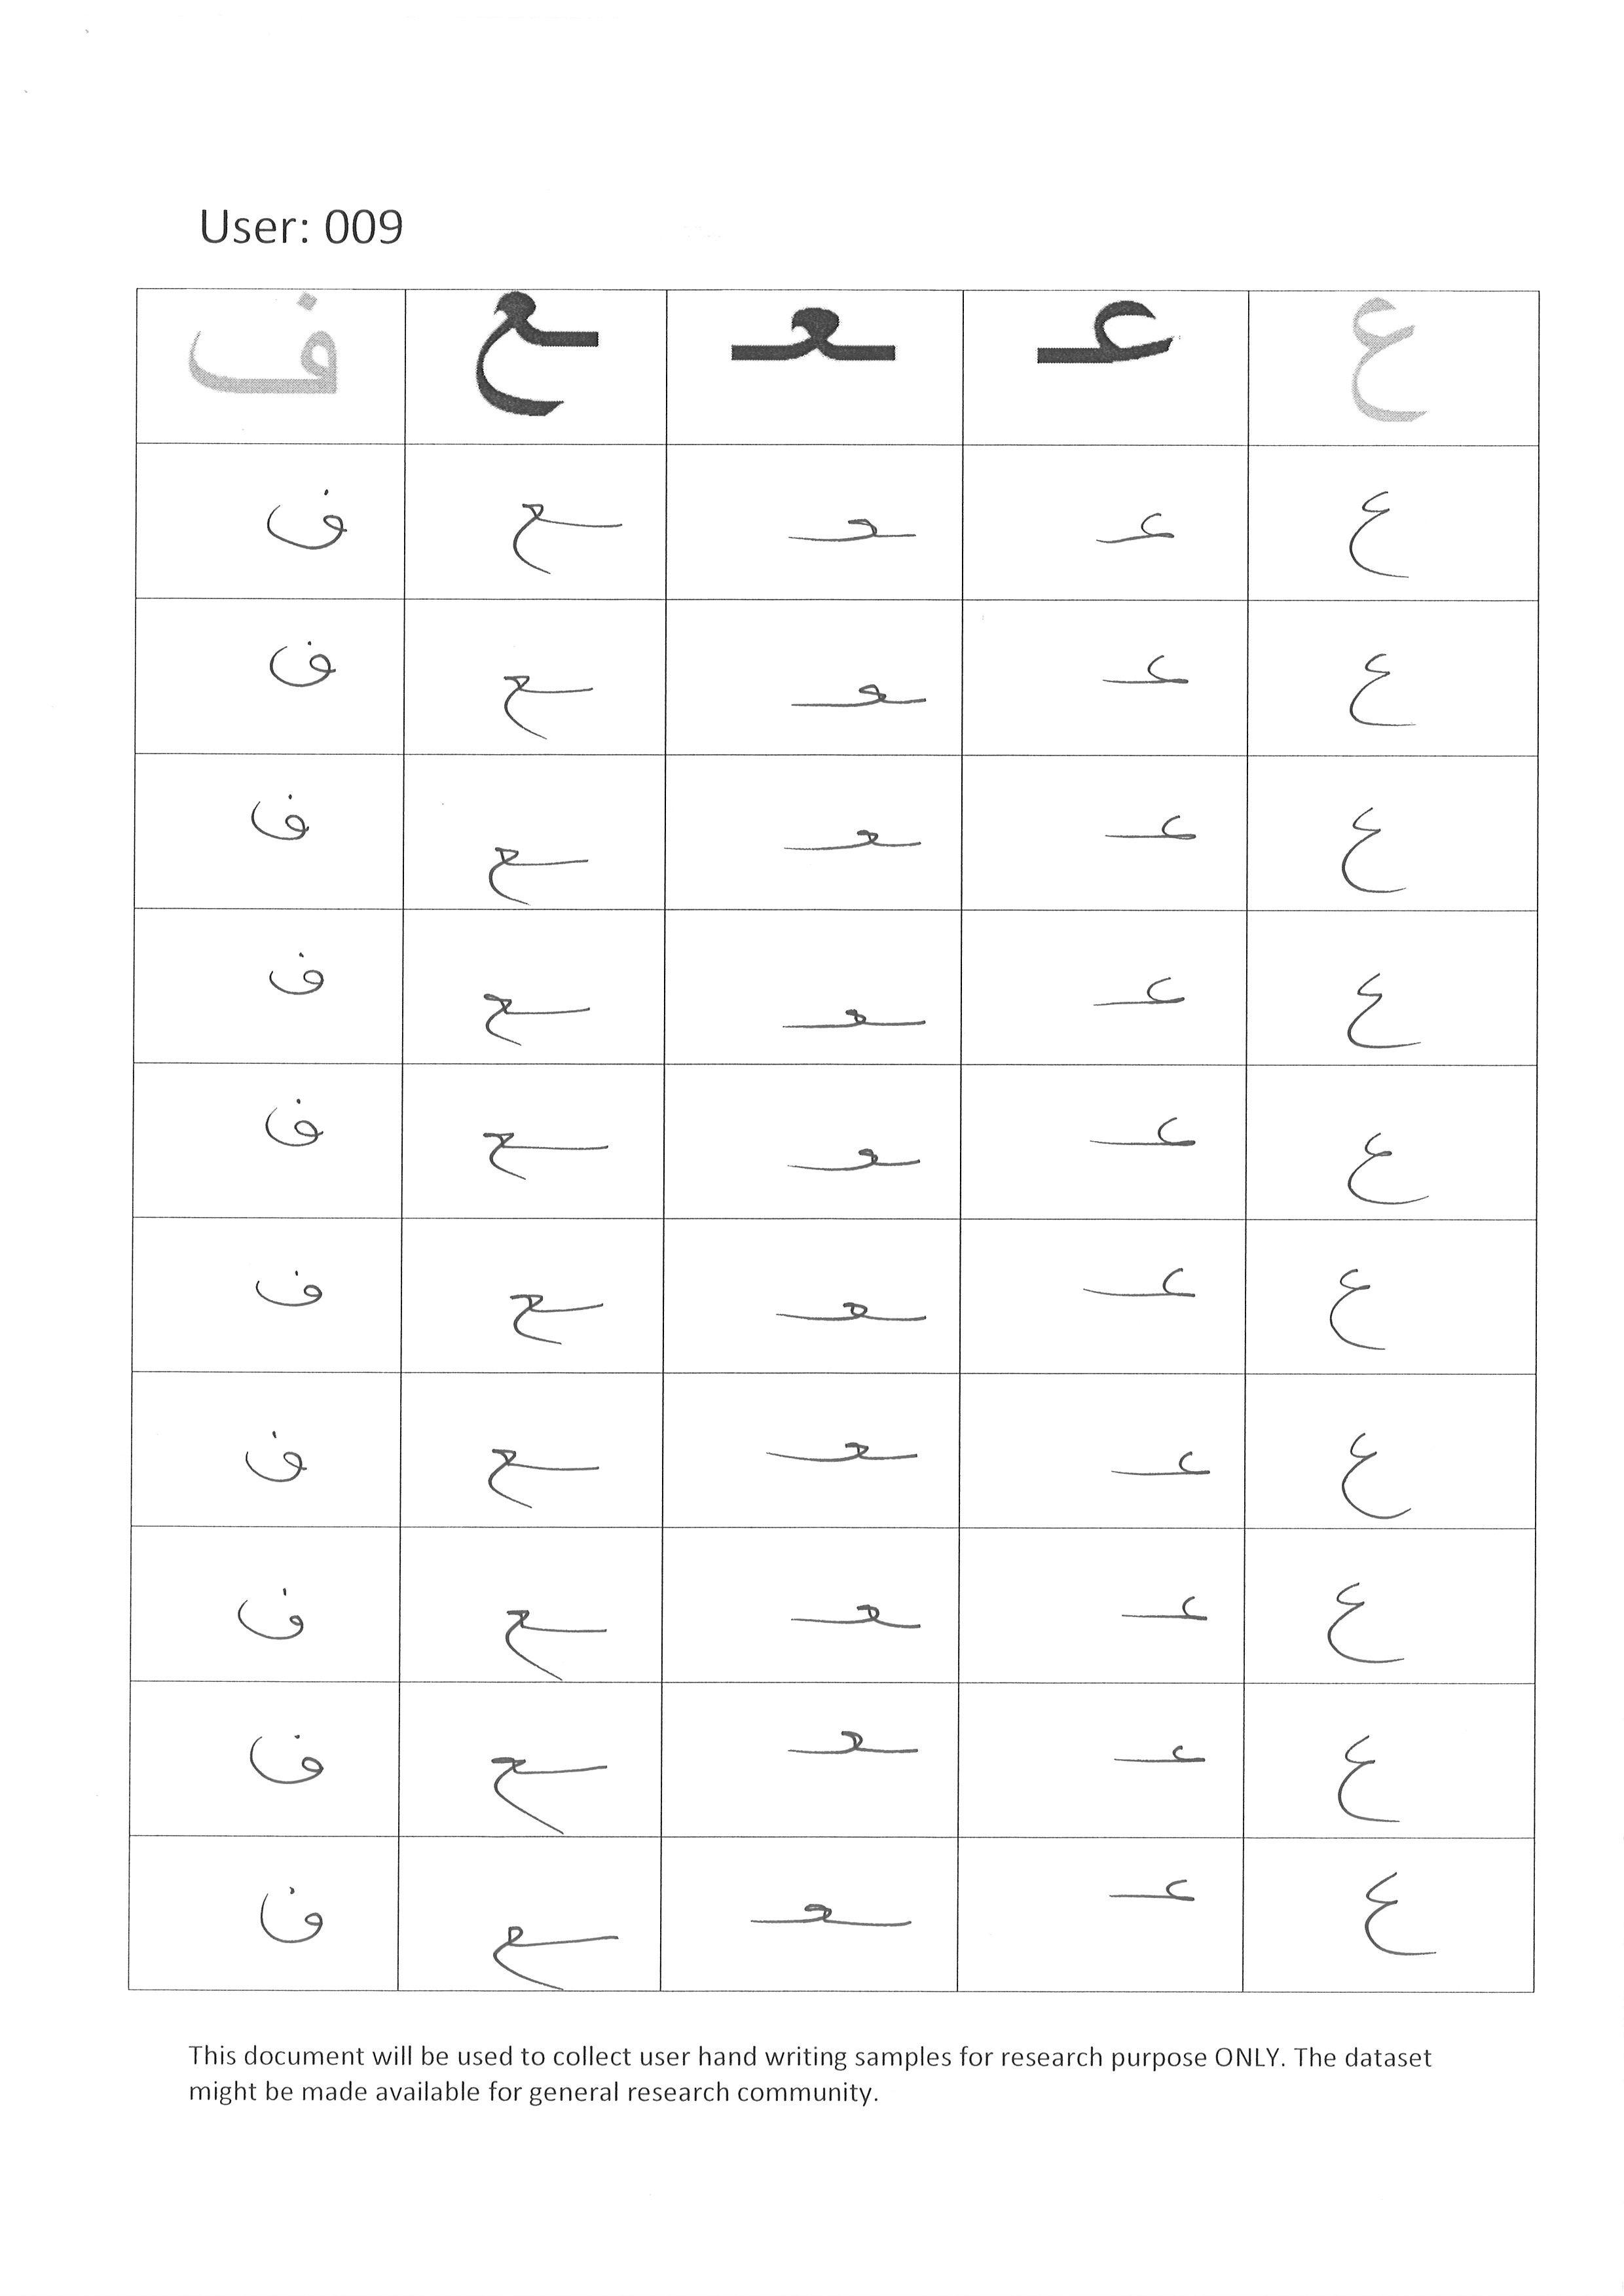 User: 009
ع عـ ـعـ ـع ف
ع عـ ـعـ ـع ف
ع عـ ـعـ ـع ف
ع عـ ـعـ ـع ف
ع عـ ـعـ ـع ف
ع عـ ـعـ ـع ف
ع عـ ـعـ ـع ف
ع عـ ـعـ ـع ف
ع عـ ـعـ ـع ف
ع عـ ـعـ ـع ف
ع عـ ـعـ ـع ف
This document will be used to collect user hand writing samples for research purpose ONLY. The dataset
might be made available for general research community.